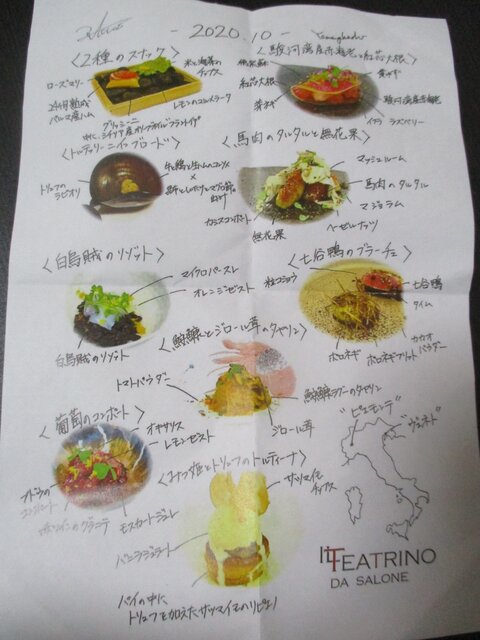 - 2020.10 -
<2種のスナック>
ローズマリー
米と海藻の
チップス
24ヶ月熟成
パルマ産ハム
レモンのコンメラータ
グリッシーニ
<駿河湾産赤海老と紅芯大根>
紅芯大根
芽ネギ
イクラ
ラズベリー
<トルテッリーニ イン ブロード>
トリュフの
ラビオリ
×
<馬肉のタルタルと無花果>
マッシュルーム
馬肉のタルタル
マジョラム
ヘーゼルナッツ
無花果
カシスコンポート
<白烏賊のリゾット>
マイクロパースレ
オレンジゼスト
白烏賊のリゾット
<七谷鴨のブラーチェ>
粒コショウ
七谷鴨
タイム
カカオ
パウダー
ポロネギフリット
ポロネギ
<鮟鱇とジロール茸のタヤリン>
トマトパウダー
鮟鱇ラグーのタヤリン
ジロール茸
<葡萄のコンポート>
オキサリス
レモンゼスト
ブドウの
コンポート
赤ワインのグラニテ
モスカートジュレ
トリュフのトルティーナ>
サツマイモ
チップス
バニラジェラート
パイの中に、
トリュフを加えたサツマイモのリピエノ
"ピエモンテ"
"ヴェネト"
IL TEATRINO
DA SALONE